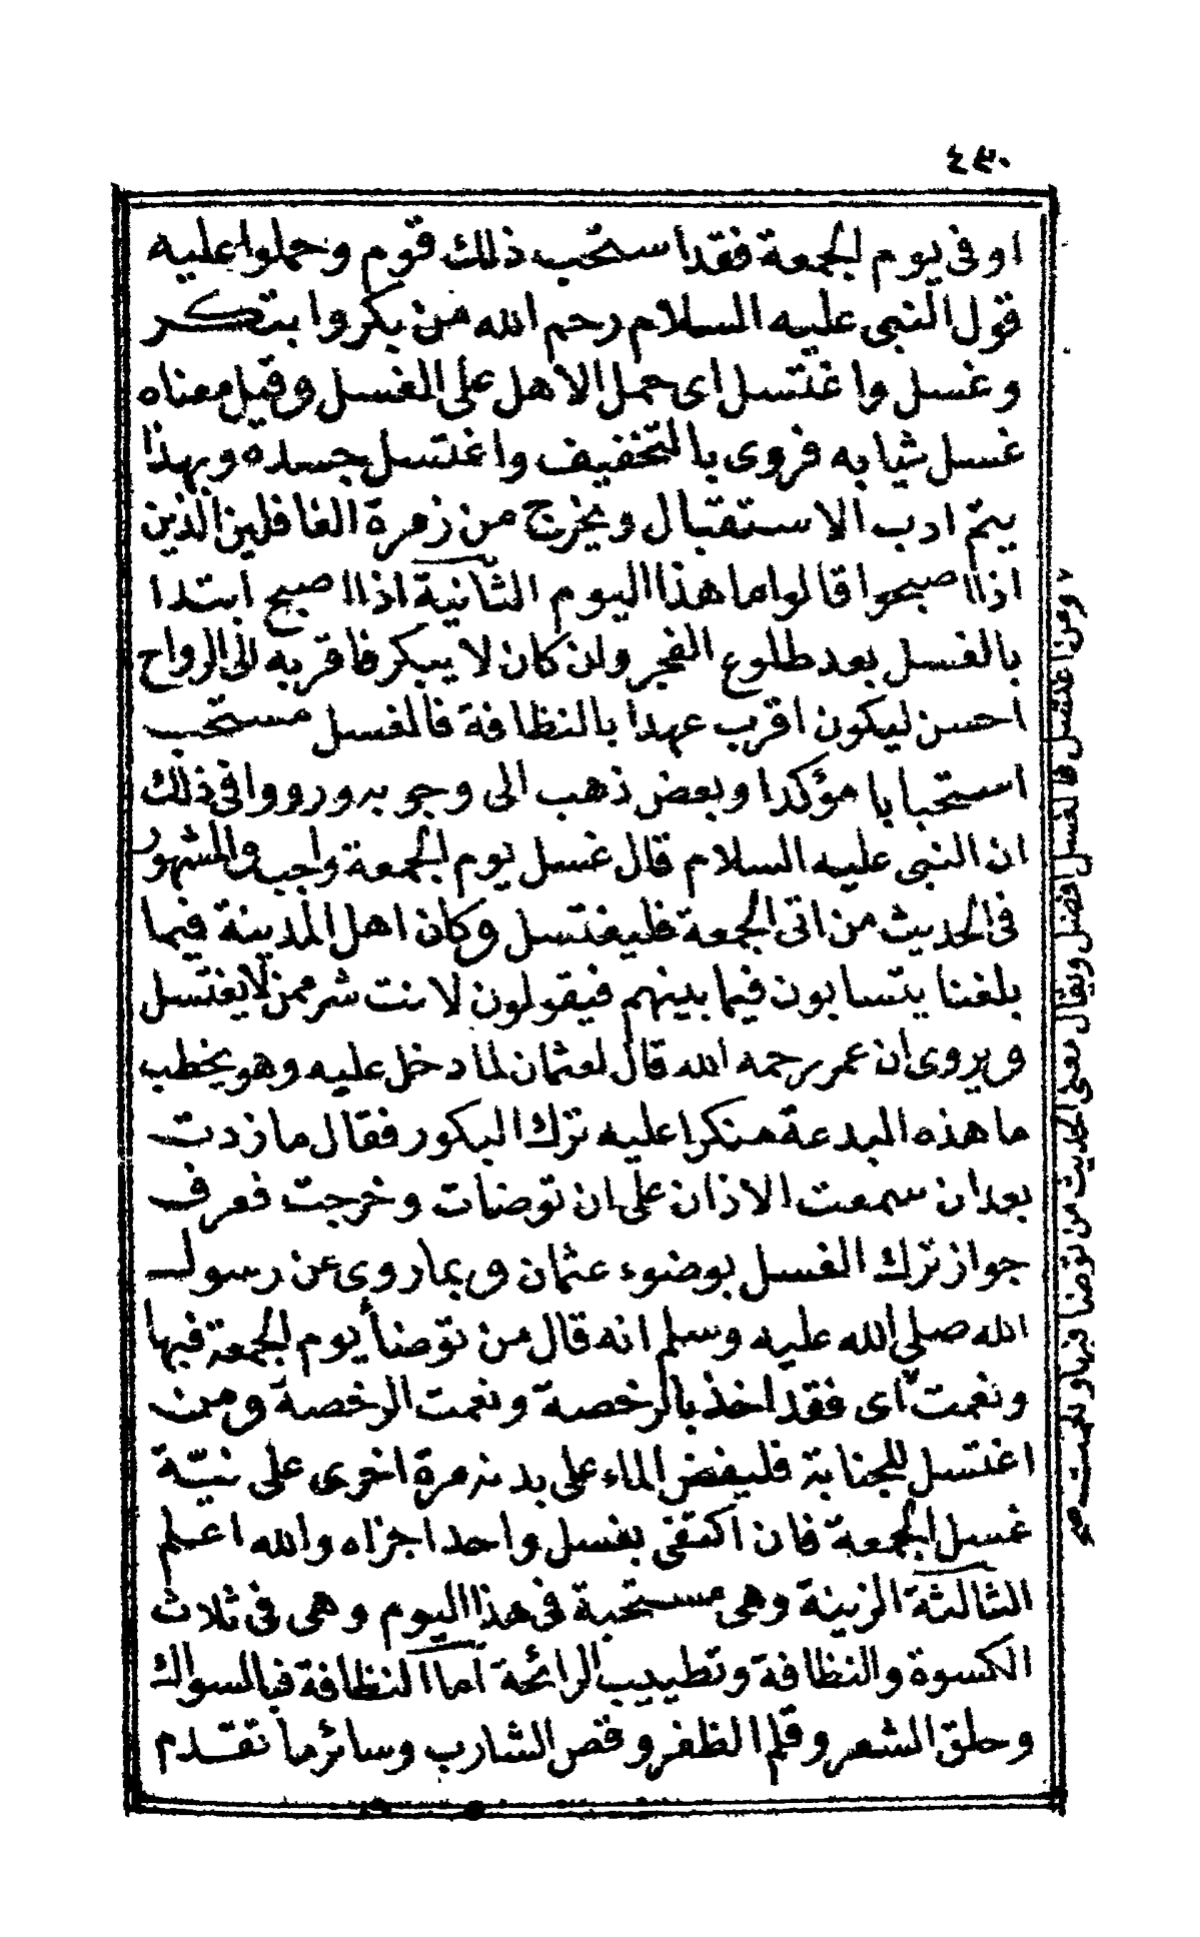 ٤٣٠
او فى يوم الجمعة فقد استحب ذلك قوم وحملوا عليه
قول النبى عليه السلام رحم الله من بكر وابتكر
وغسل واغتسل اى حمل الاهل على الغسل وقيل معناه
غسل ثيابه فروى بالتخفيف واغتسل جسده وبهذا
يتم ادب الاستقبال ويخرج من زمرة الغافلين الذين
اذا اصبحوا قالوا ما هذا اليوم الثانية اذا اصبح ابتدا
بالغسل بعد طلوع الفجر وان كان لا يبكر فاقربه الى الرواح
احسن ليكون اقرب عهدا بالنظافة فالغسل مستحب
استحبابا مؤكدا وبعض ذهب الى وجوبه ورووا فى ذلك
ان النبى عليه السلام قال غسل يوم الجمعة واجب والمشهور
فى الحديث من اتى الجمعة فليغتسل وكان اهل المدينة فيما
بلغنا يتسابون فيما بينهم فيقولون لانت شر ممن لا يغتسل
ويروى ان عمر رحمه الله قال لعثمان لما دخل عليه وهو يخطب
ما هذه البدعة منكرا عليه ترك البكور فقال ما زدت
بعد ان سمعت الاذان على ان توضات وخرجت فعرف
جواز ترك الغسل بوضوء عثمان وبما روى عن رسول
الله صلى الله عليه وسلم انه قال من توضأ يوم الجمعة فبها
ونعمت اى فقد اخذ بالرخصة ونعمت الرخصة ومن
اغتسل للجنابة فليفض الماء على بدنه مرة اخرى على نيّة
غسل الجمعة فان اكتفى بغسل واحد اجزاه والله اعلم
الثالثة الزينة وهى مستحبة فى هذا اليوم وهى فى ثلاث
الكسوة والنظافة وتطييب الرائحة اما النظافة فبالسواك
وحلق الشعر وقلم الظفر وقص الشارب وسائر ما تقدم
ومن اغتسل فالغسل افضل ويقال معنى الحديث من توضا فبها ونعمت صح